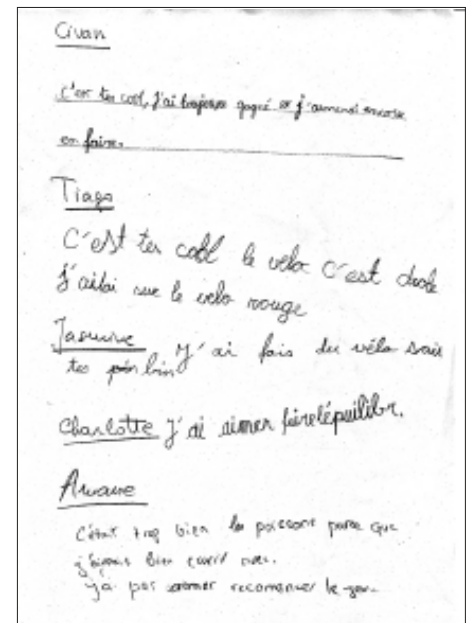 Civan
c'est tes cool, j'ai toujours gagné et j'aimerai encore
en faire.
Tiago
C'est tes cool le velo c'est drole
j'aitai sur le velo rouge
Jasmine J'ai fais du vélo sait
tes bin
Charlotte J'ai aimer
Awane
C'était trop bien le poisson parce que
bien avec.
pas aimer recomencer le